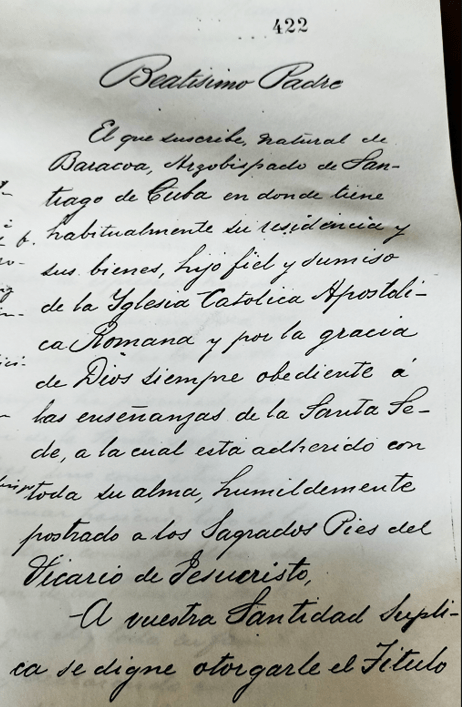 422
Beatisimo Padre
El que suscribe, natural de
Baracoa, Arzobispado de San-
tiago de Cuba en donde tiene
habitualmente su residencia y
sus bienes, hijo fiel y sumiso
de la Yglesia Catolica Apostoli-
ca Romana y por la gracia
de Dios siempre obediente á
las enseñanzas de la Santa Se-
de, a la cual está adherido con
toda su alma, humildemente
postrado a los Sagrados Pies del
Vicario de Jesucristo,
-A vuestra Santidad Supli-
ca se digne otorgarle el Titulo